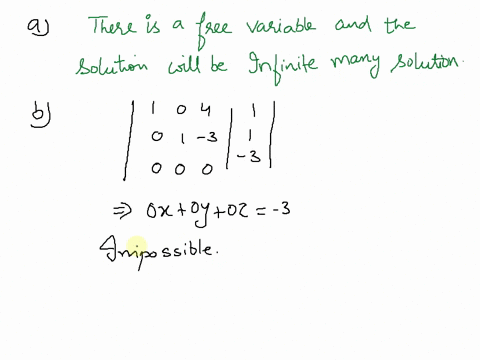 a) There is a free variable and the
solution will be Infinite many solution.
b)
1 0 4 | 1
0 1 -3 | 1
0 0 0 | -3
⇒ 0x+0y+0z = -3
Impossible.